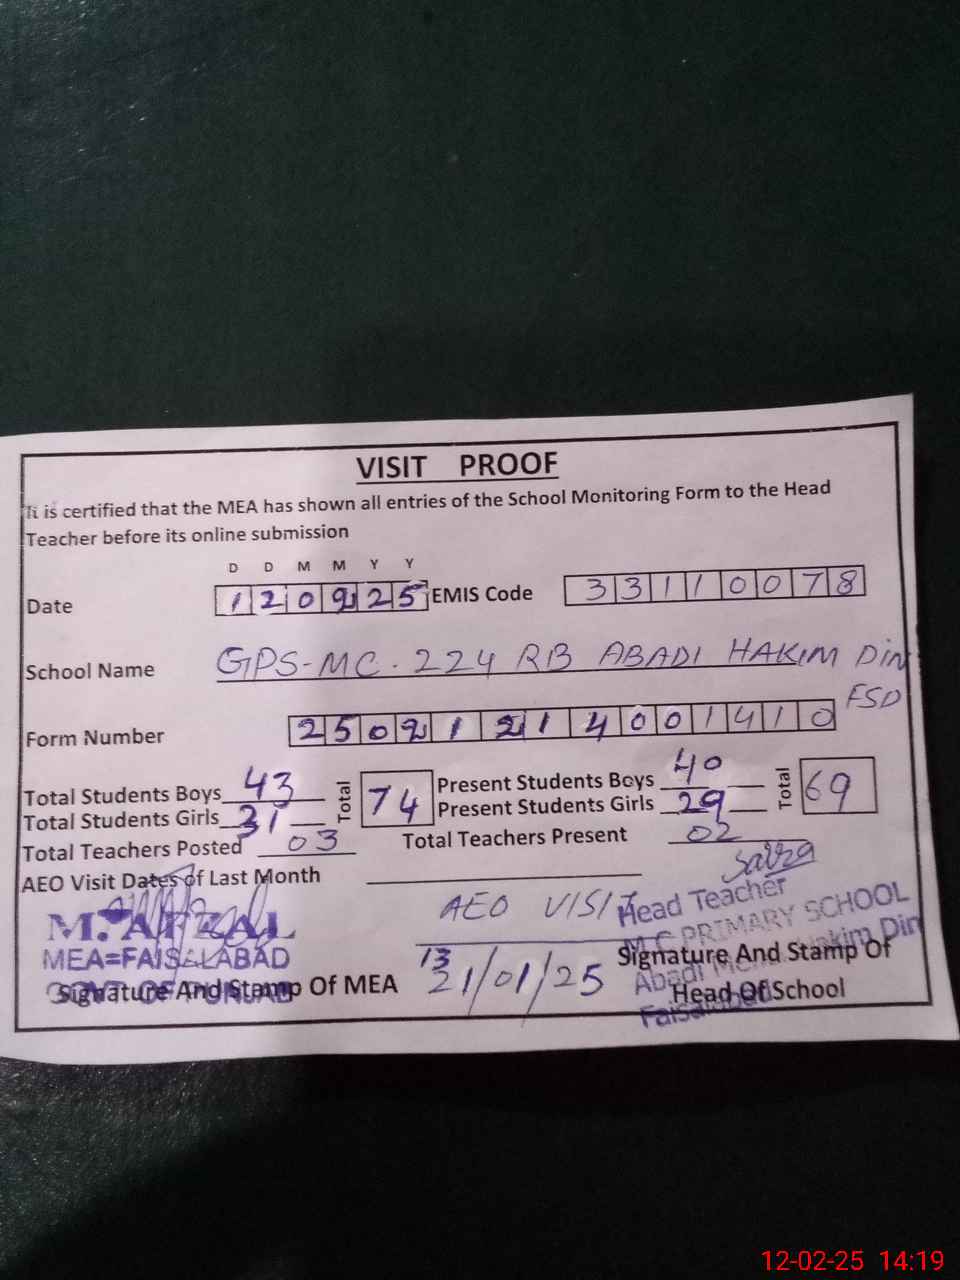 VISIT PROOF
It is certified that the MEA has shown all entries of the School Monitoring Form to the Head
Teacher before its online submission
D D M M Y Y
Date 120225 EMIS Code 33110078
School Name GPS-MC. 224 RB ABADI HAKIM Din
FSD
Form Number 25021214001410
Total Students Boys 43 Total 74 Present Students Boys 40 Total 69
Total Students Girls 31 Present Students Girls 29
Total Teachers Posted 03 Total Teachers Present 02
AEO Visit Dates of Last Month
AEO VISIT
M. AFZAL
MEA=FAISALABAD
Signature And Stamp Of MEA
13
21/01/25
Head Teacher
M.C PRIMARY SCHOOL
Abadi Hakim Din
Faisalabad
Signature And Stamp Of
Head Of School
12-02-25 14:19